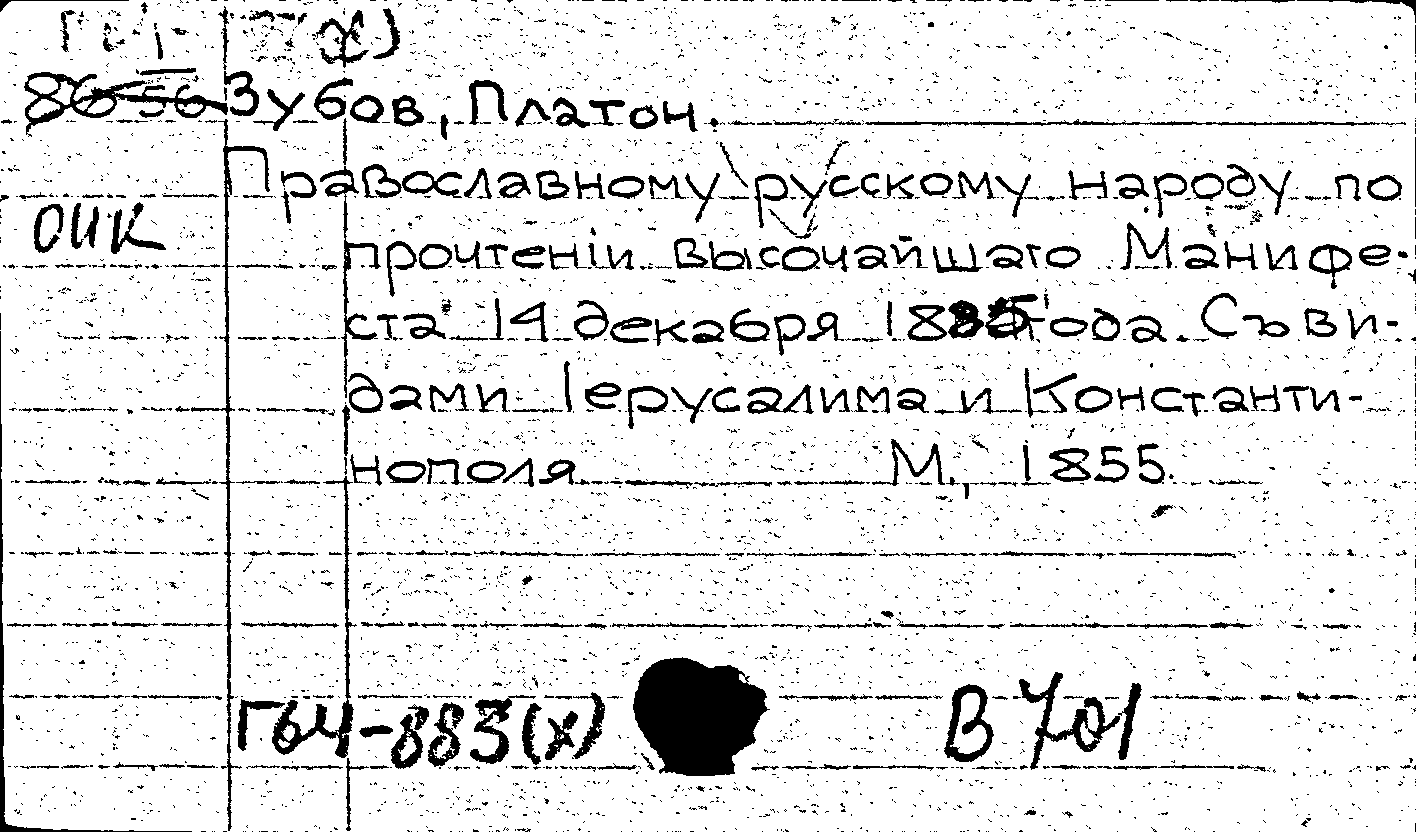 Зубов, Платон.
Православному русскому народу по
ОИК
прочтенiи высочайшаго Манифе-
ста 14 декабря 1885 года. Съ ви-
дами Iерусалима и Константи-
нополя М., 1855.
Г64-883(х) В 701